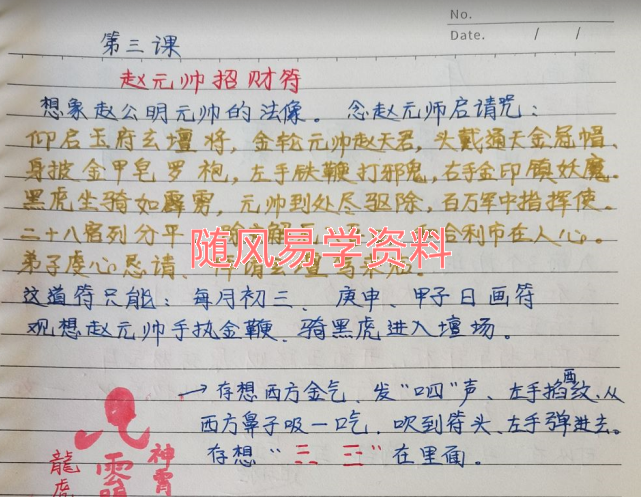 No.
Date.       /       /
第三课
赵元帅招财符
想象赵公明元帅的法像。念赵元师启请咒：
仰启玉府玄壇将，金轮元帅赵天君，头戴通天金冠帽、
身披金甲皂罗袍，左手铁鞭打邪鬼，右手金印镇妖魔。
黑虎坐骑如霹雳，元帅到处尽驱除，百万军中指挥使。
二十八宿列分平 合利市在人心。
随风易学资料
弟子虔心恳请、
这道符只能：每月初三、庚申、甲子日画符
观想赵元帅手执金鞭、骑黑虎进入壇场。
→存想西方金气、发“呬”声、左手掐酉纹、从
西方鼻子吸一口气，吹到符头、左手弹进去。
存想“三、三”在里面。
神霄
龍虎